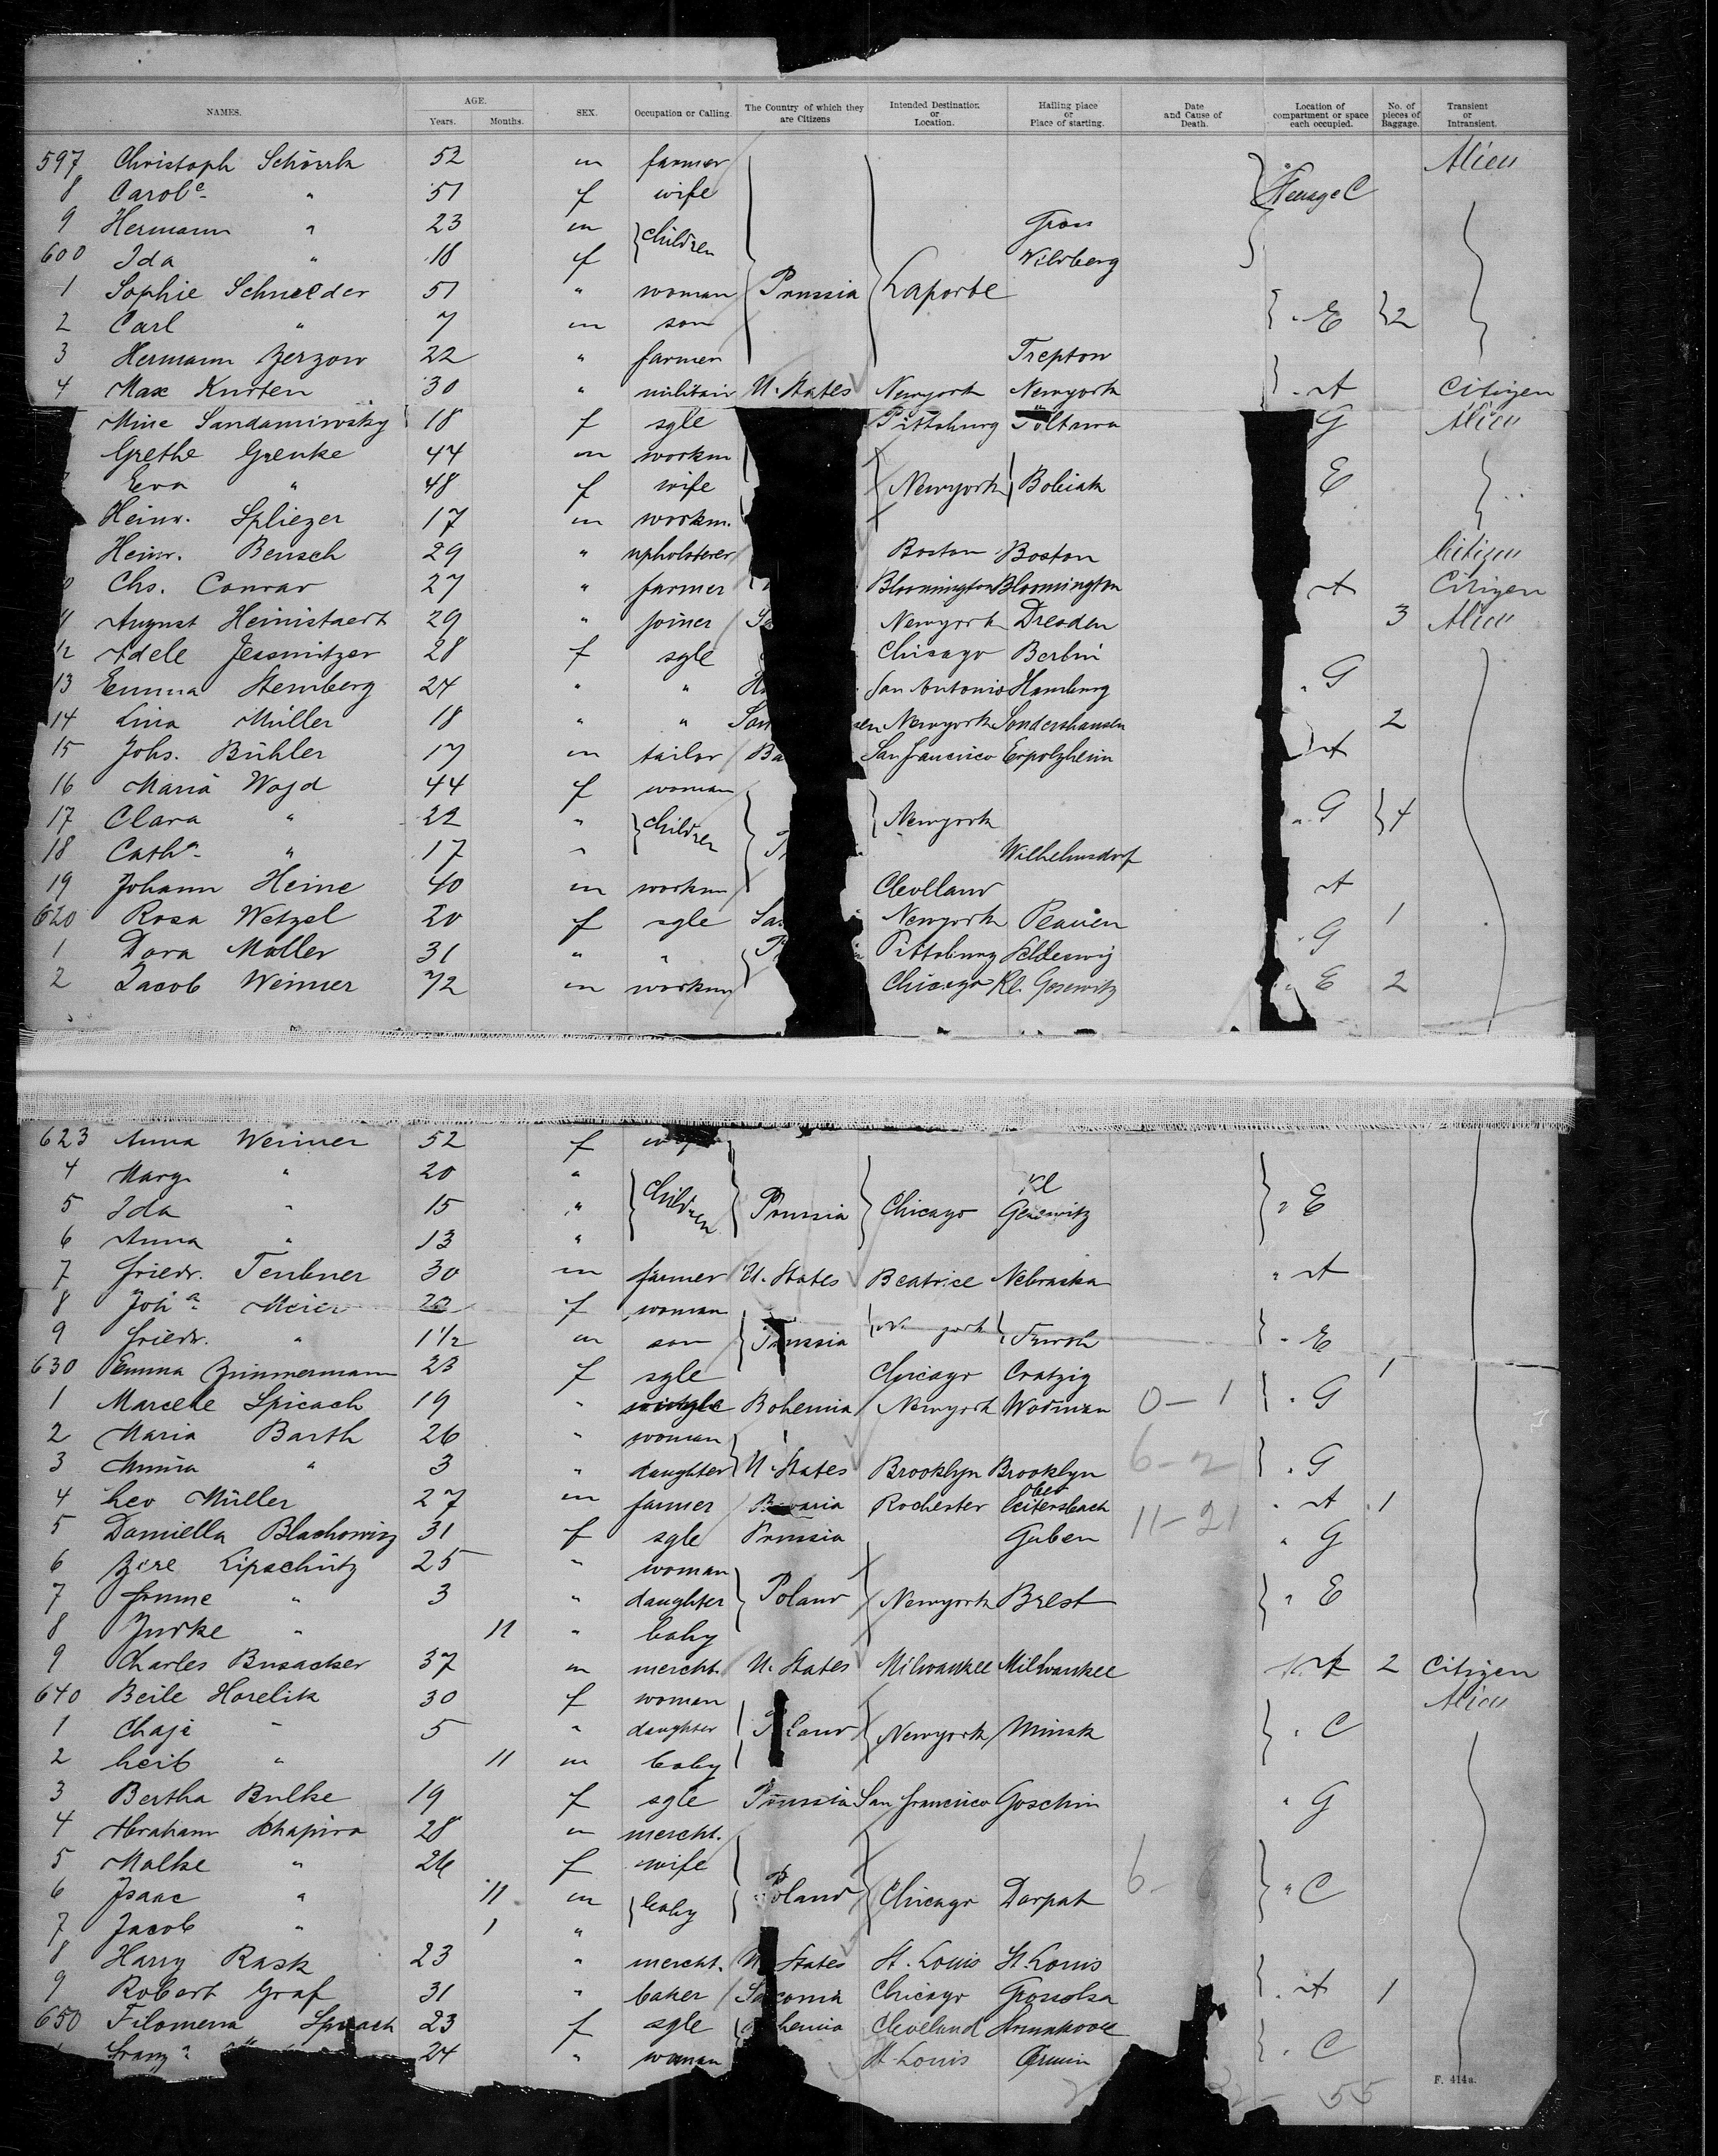 NAMES. AGE. Years. Months. SEX. Occupation or Calling. The Country of which they are Citizens Intended Destination or Location. Hailing place or Place of starting. Date and Cause of Death. Location of compartment or space each occupied. No. of pieces of Baggage. Transient or Intransient.
597 Christoph 52 m farmer Alien
8 Carol.e " 51 f wife Steerage C
9 Hermann " 23 m children Gross
600 Ida " 18 f Wildberg
1 Sophie Schneider 51 " woman Prussia Laporte
2 Carl " 7 m son " E 2
3 Hermann Zerzow 22 " farmer Treptow
4 Max Knrten 30 " militair U. States Newyork Newyork " A Citizen
Mine Sandamirosky 18 f sgle Pittsburg Poltawa G Alien
Grethe Grenke 44 m workm
Eva " 48 f wife Newyork E
Heinr. Spliezer 17 m workm.
Heinr. Bensch 29 " upholsterer Boston Boston Citizen
Chs. Conrad 27 " farmer Bloomington Bloomington A Citizen
11 August 29 " joiner Newyork Dresden 3 Alien
12 Adele Jessnitzer 28 f sgle Chicago Berlin
13 Emma Sternberg 24 " " San Antonio Hamburg " G
14 Lina Müller 18 " " en Newyork Sondershausen 2
15 Johs. Bühler 17 m tailor Ba San Francisco Erpolzheim A
16 Maria Wojd 44 f woman
17 Clara " 22 " children Newyork " G 4
18 Cath.a " 17 " Wilhelmsdorf
19 Johann Heine 40 m workm Clevlland A
620 Rosa Wetzel 20 f sgle Sa Newyork 1
1 Dora Moller 31 " " P Pittsburg " G
2 Jacob Weimer 72 m workm Chicago Kl. Gesewitz " E 2
623 Anna Weimer 52 f wife
4 Marg. " 20 " children Kl
5 Ida " 15 " Prussia Chicago Gesewitz " E
6 Anna " 13 "
7 Friedr. Teubner 30 m farmer U. States Beatrice Nebraska " A
8 Joh.a Meier 22 f woman
9 Friedr. " 1 1/2 m son Prussia york " E
630 Emma Zimmermann 23 f sgle Chicago Cratzig 1
1 Marcele Spicach 19 " Bohemia Newyork Wodnian 0-1 " G
2 Maria Barth 26 " woman
3 Minna " 3 " daughter U. States Brooklyn Brooklyn 6-2 " G
4 Leo Müller 27 m farmer Bavaria Rochester Ober Leitersbach " A 1
5 Damiella Blachowicz 31 f sgle Prussia Guben 11-21 " G
6 Zire Lipschütz 25 " woman
7 Fromme " 3 " daughter Poland Newyork Brest " E
8 Jurke " 11 " baby
9 Charles Busacker 37 m mercht. U. States Milwaukee Milwaukee A 2 Citizen
640 Beile Horelik 30 f woman Alien
1 Chaje " 5 " daughter Poland Newyork Minsk " C
2 Leib " 11 m baby
3 Bertha Bulke 19 f sgle Prussia San Francisco Goschin " G
4 Abraham Schapiro 28 m mercht.
5 Malke " 26 f wife
6 Isaac " 11 m baby Poland Chicago Dorpat 6- " C
7 Jacob " 1 "
8 Harry Rask 23 " mercht. U. States St. Louis St. Louis
9 Robert Graf 31 " baker Saxonia Chicago " A 1
650 Filomena 23 f sgle Bohemia Cleveland
Franz.a 24 " woman St Louis " C
55
F. 414a.